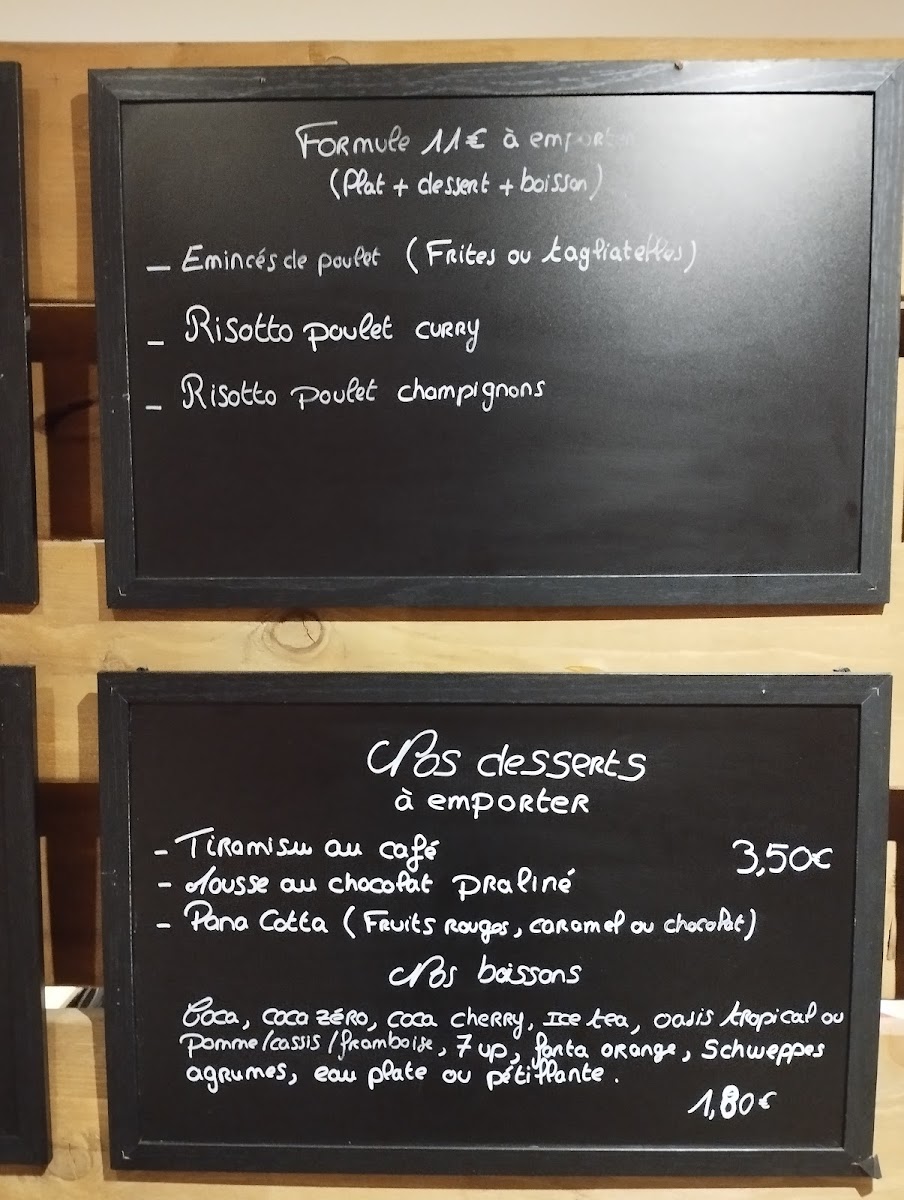 Formule 11€ à emporter
(Plat + dessert + boisson)
- Emincés de poulet (Frites ou tagliatelles)
- Risotto poulet curry
- Risotto poulet champignons
Nos desserts
à emporter
- Tiramisu au café 3,50€
- Mousse au chocolat praliné
- Pana Cotta (Fruits rouges, caramel ou chocolat)
Nos boissons
Coca, coca zéro, coca cherry, Ice tea, oasis tropical ou
pomme/cassis/framboise, 7 up, fanta orange, Schweppes
agrumes, eau plate ou pétillante.
1,80€